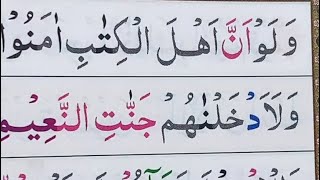 وَلَوْ اَنَّ اَهْلَ الْكِتٰبِ اٰمَنُوْا
وَلَاَدْخَلْنٰهُمْ جَنّٰتِ النَّعِيْمِ